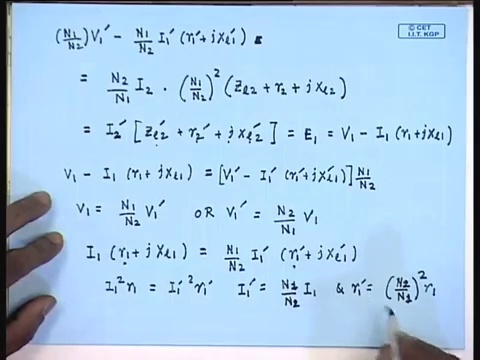 © CET
I.I.T. KGP
(N1/N2) V1' - N1/N2 I1' (r1' + jxl1')
= N2/N1 I2 · (N1/N2)² (Zl2 + r2 + jxl2)
= I2' [Zl2' + r2' + jxl2'] = E1 = V1 - I1 (r1 + jxl1)
V1 - I1 (r1 + jxl1) = [V1' - I1' (r1' + jxl1')] N1/N2
V1 = N1/N2 V1' OR V1' = N2/N1 V1
I1 (r1 + jxl1) = N1/N2 I1' (r1' + jxl1')
I1² r1 = I1'² r1' I1' = N1/N2 I1 & r1' = (N2/N1)² r1